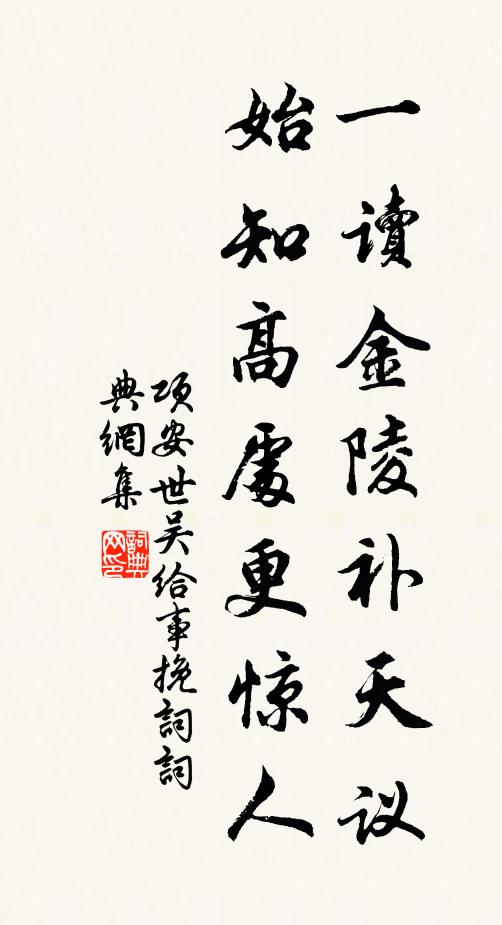 一读金陵补天议
始知高處更惊人
项安世吴给事挽詞詞
典網集
詞典
网印